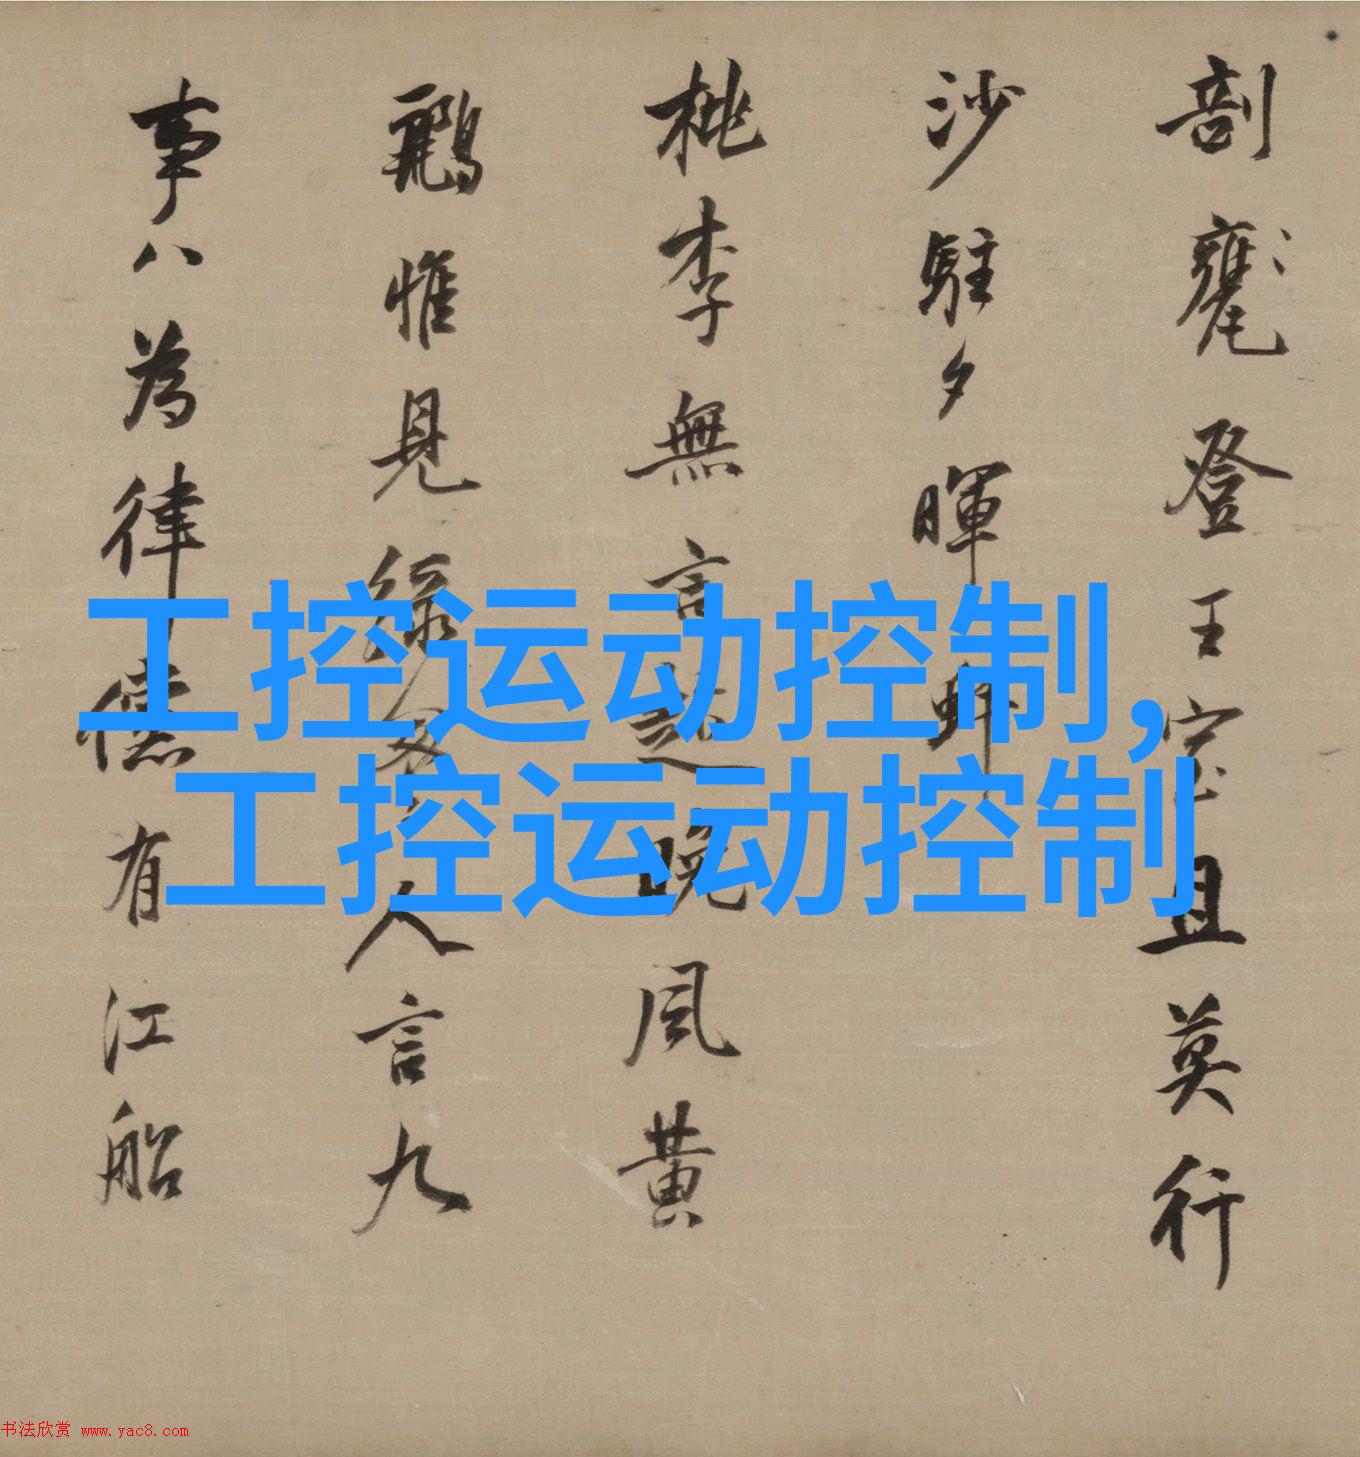 剖甕登王且莫行
沙駐夕暉
桃李無言晚風黃
鸝惟見綠人言九
事八為律儻有江船
工控运动控制,
工控运动控制
书法欣赏 www.yac8.com